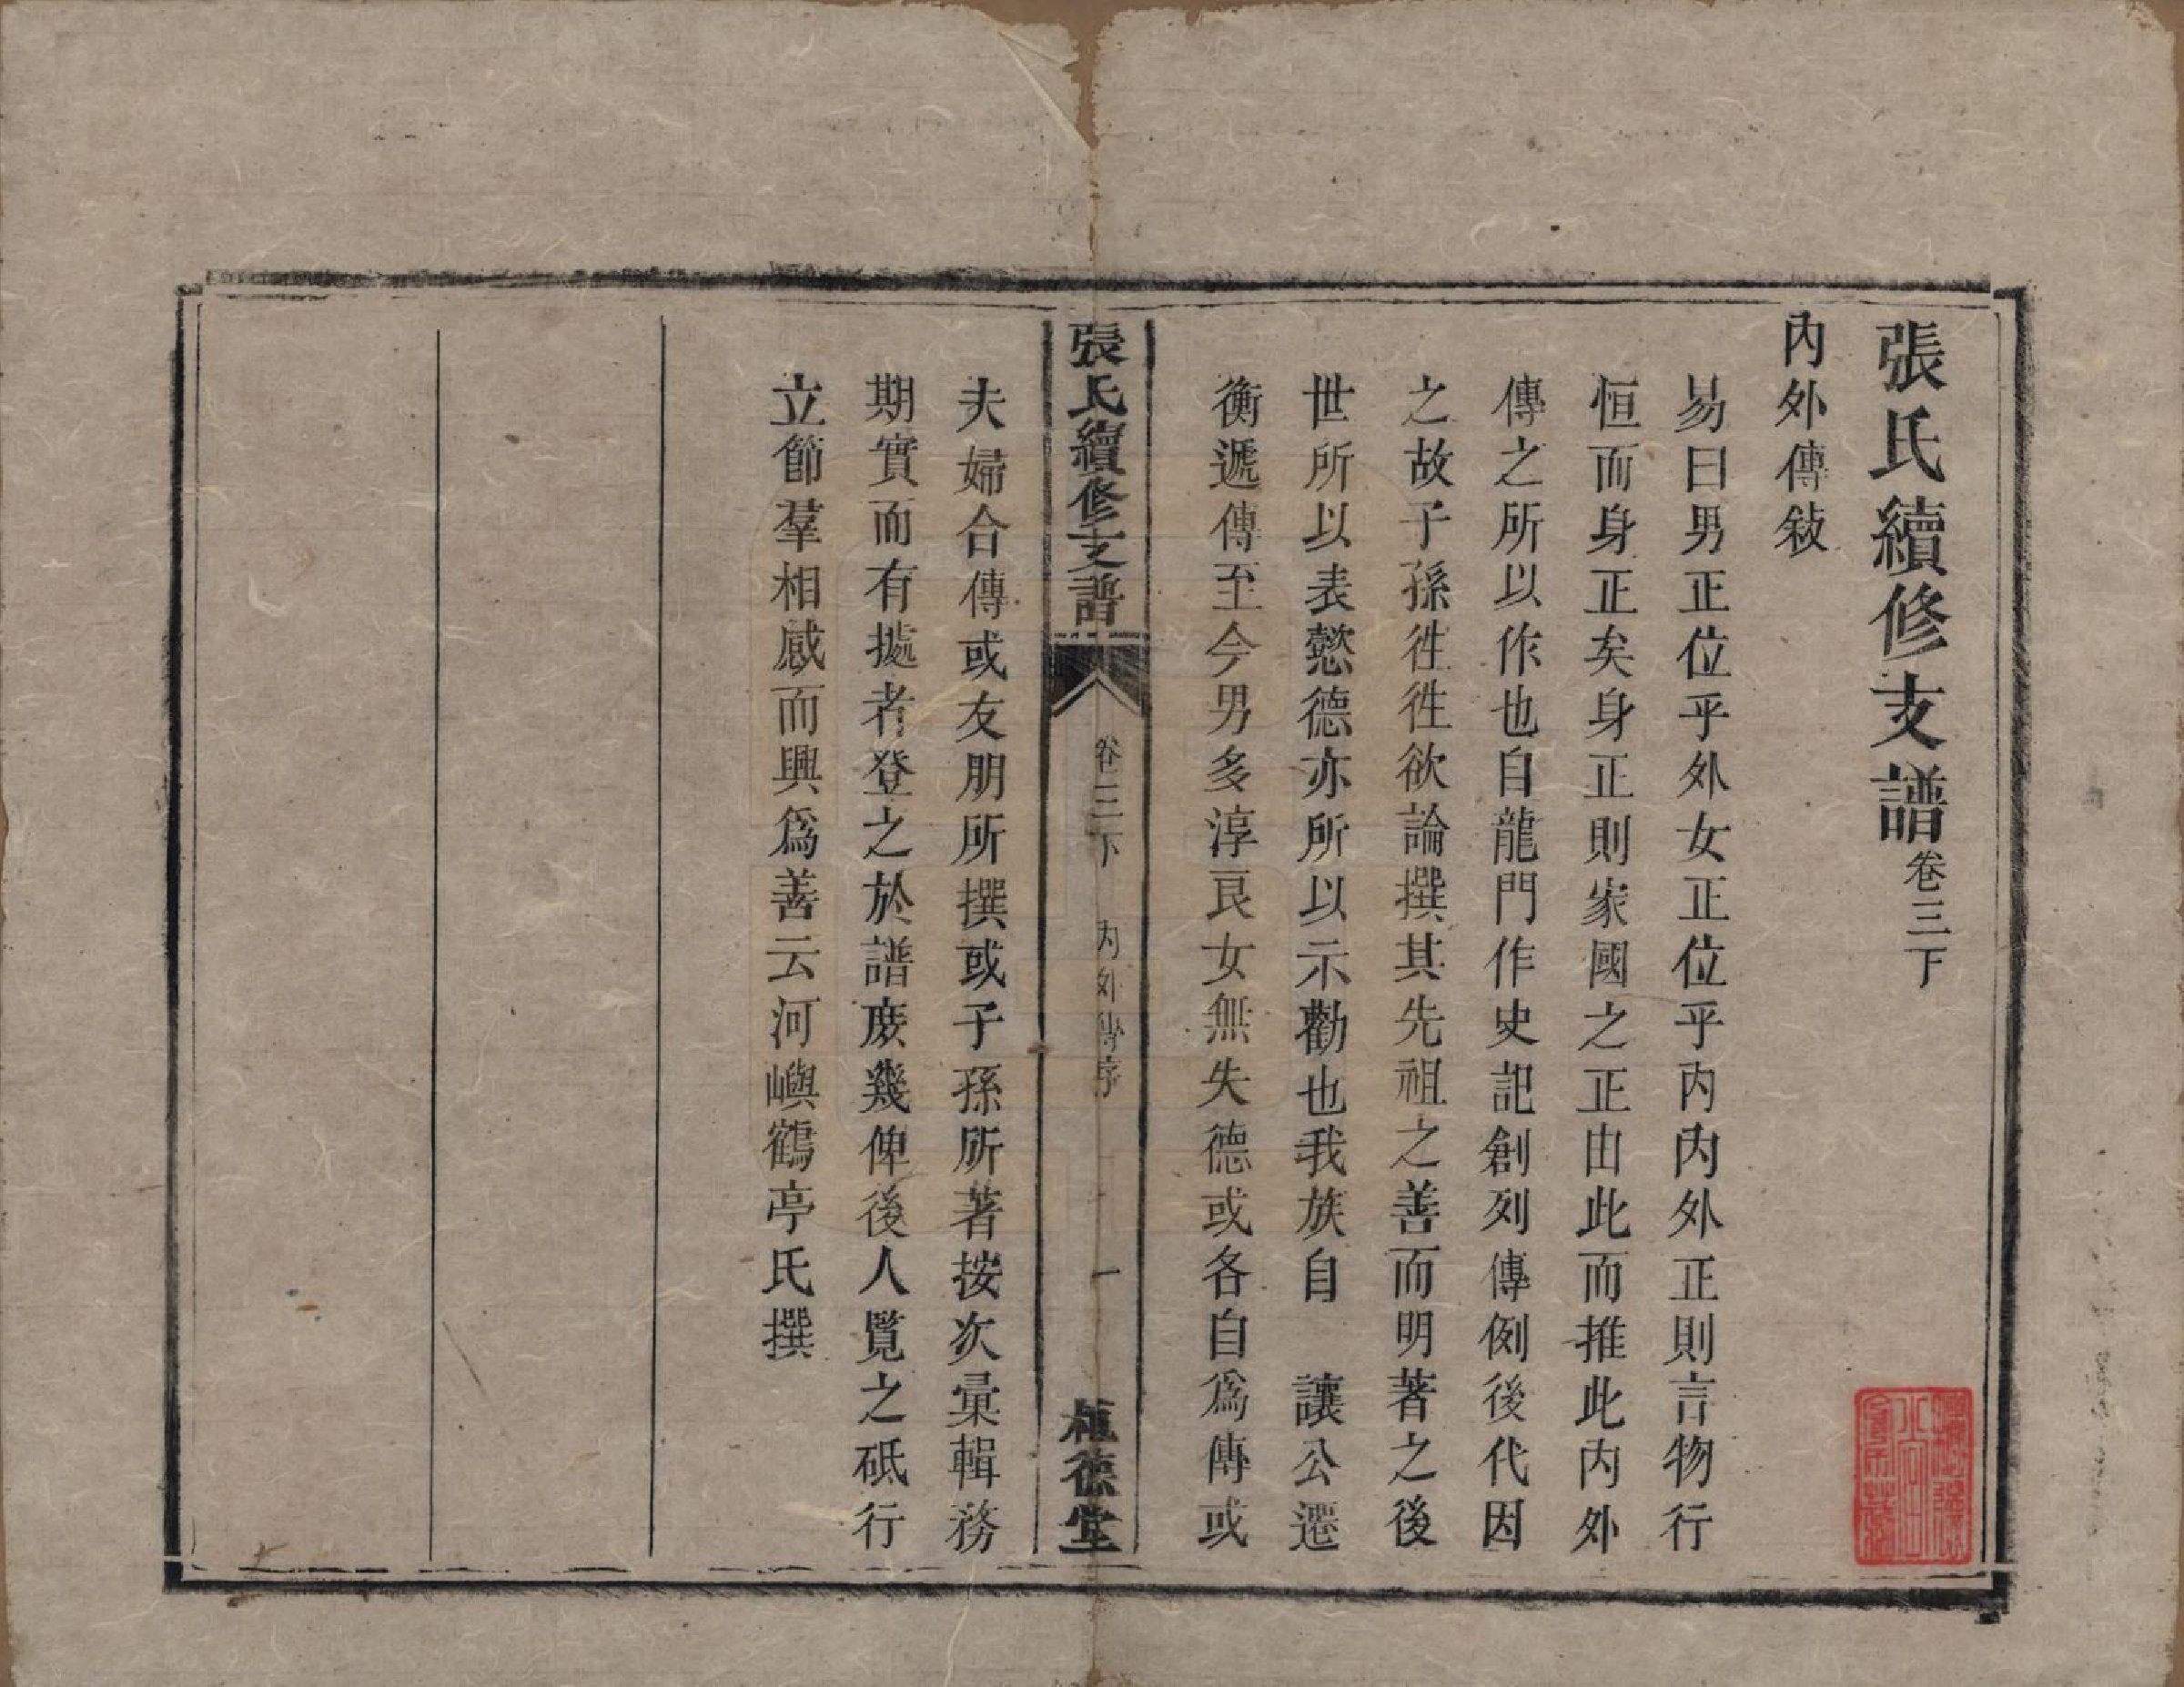 張氏續修支譜卷三下
內外傳敍
易曰男正位乎外女正位乎內內外正則言物行
恒而身正矣身正則家國之正由此而推此內外
傳之所以作也自龍門作史記創列傳例後代因
之故子孫徃徃欲論撰其先祖之善而明著之後
世所以表懿德亦所以示勸也我族自　讓公遷
衡遞傳至今男多淳良女無失德或各自爲傳或
張氏續修支譜　卷三下　內外傳序　一　植德堂
夫婦合傳或友朋所撰或子孫所著按次彙輯務
期實而有據者登之於譜庶幾俾後人覽之砥行
立節羣相感而興爲善云河嶼鶴亭氏撰